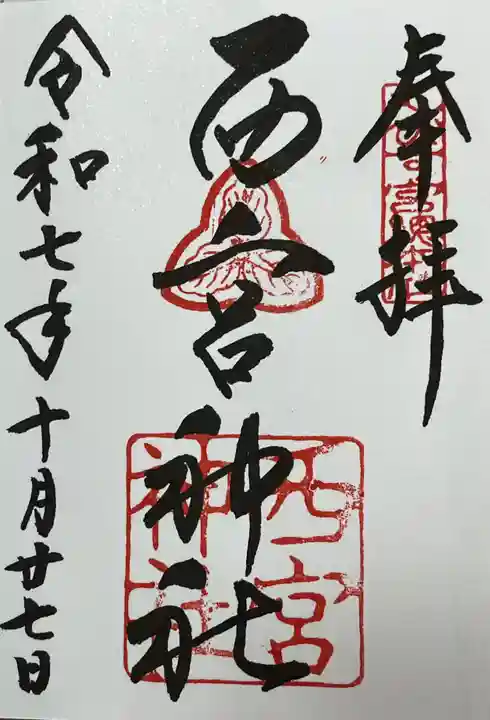 奉拝
西宮神社
西宮
神社
令和七年十月廿七日